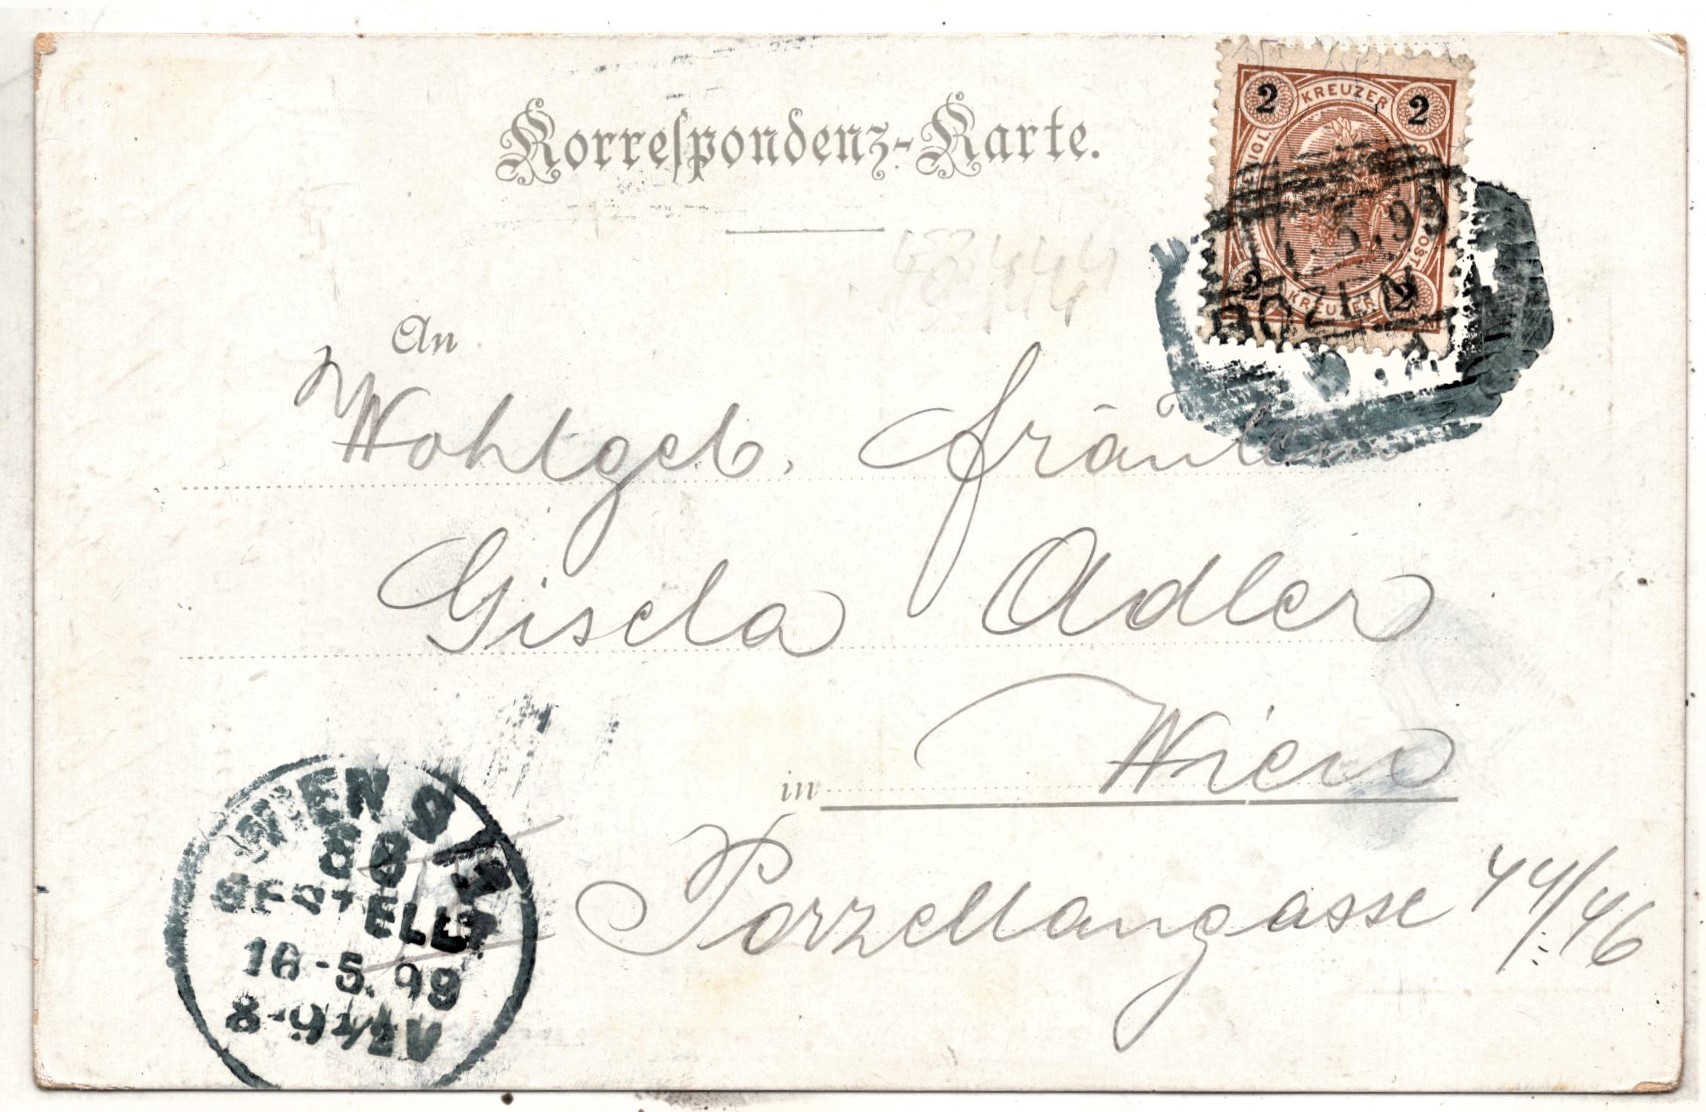 Korrespondenz-Karte.
2 KREUZER 2
5.99
2 KREUZER 2
BOZEN
An
Wohlgeb. Fräulein
Gisela Adler
in Wien
Porzellangasse 44/46
WIEN 9/3
88
BESTELLT
16-5.99
8-9½V